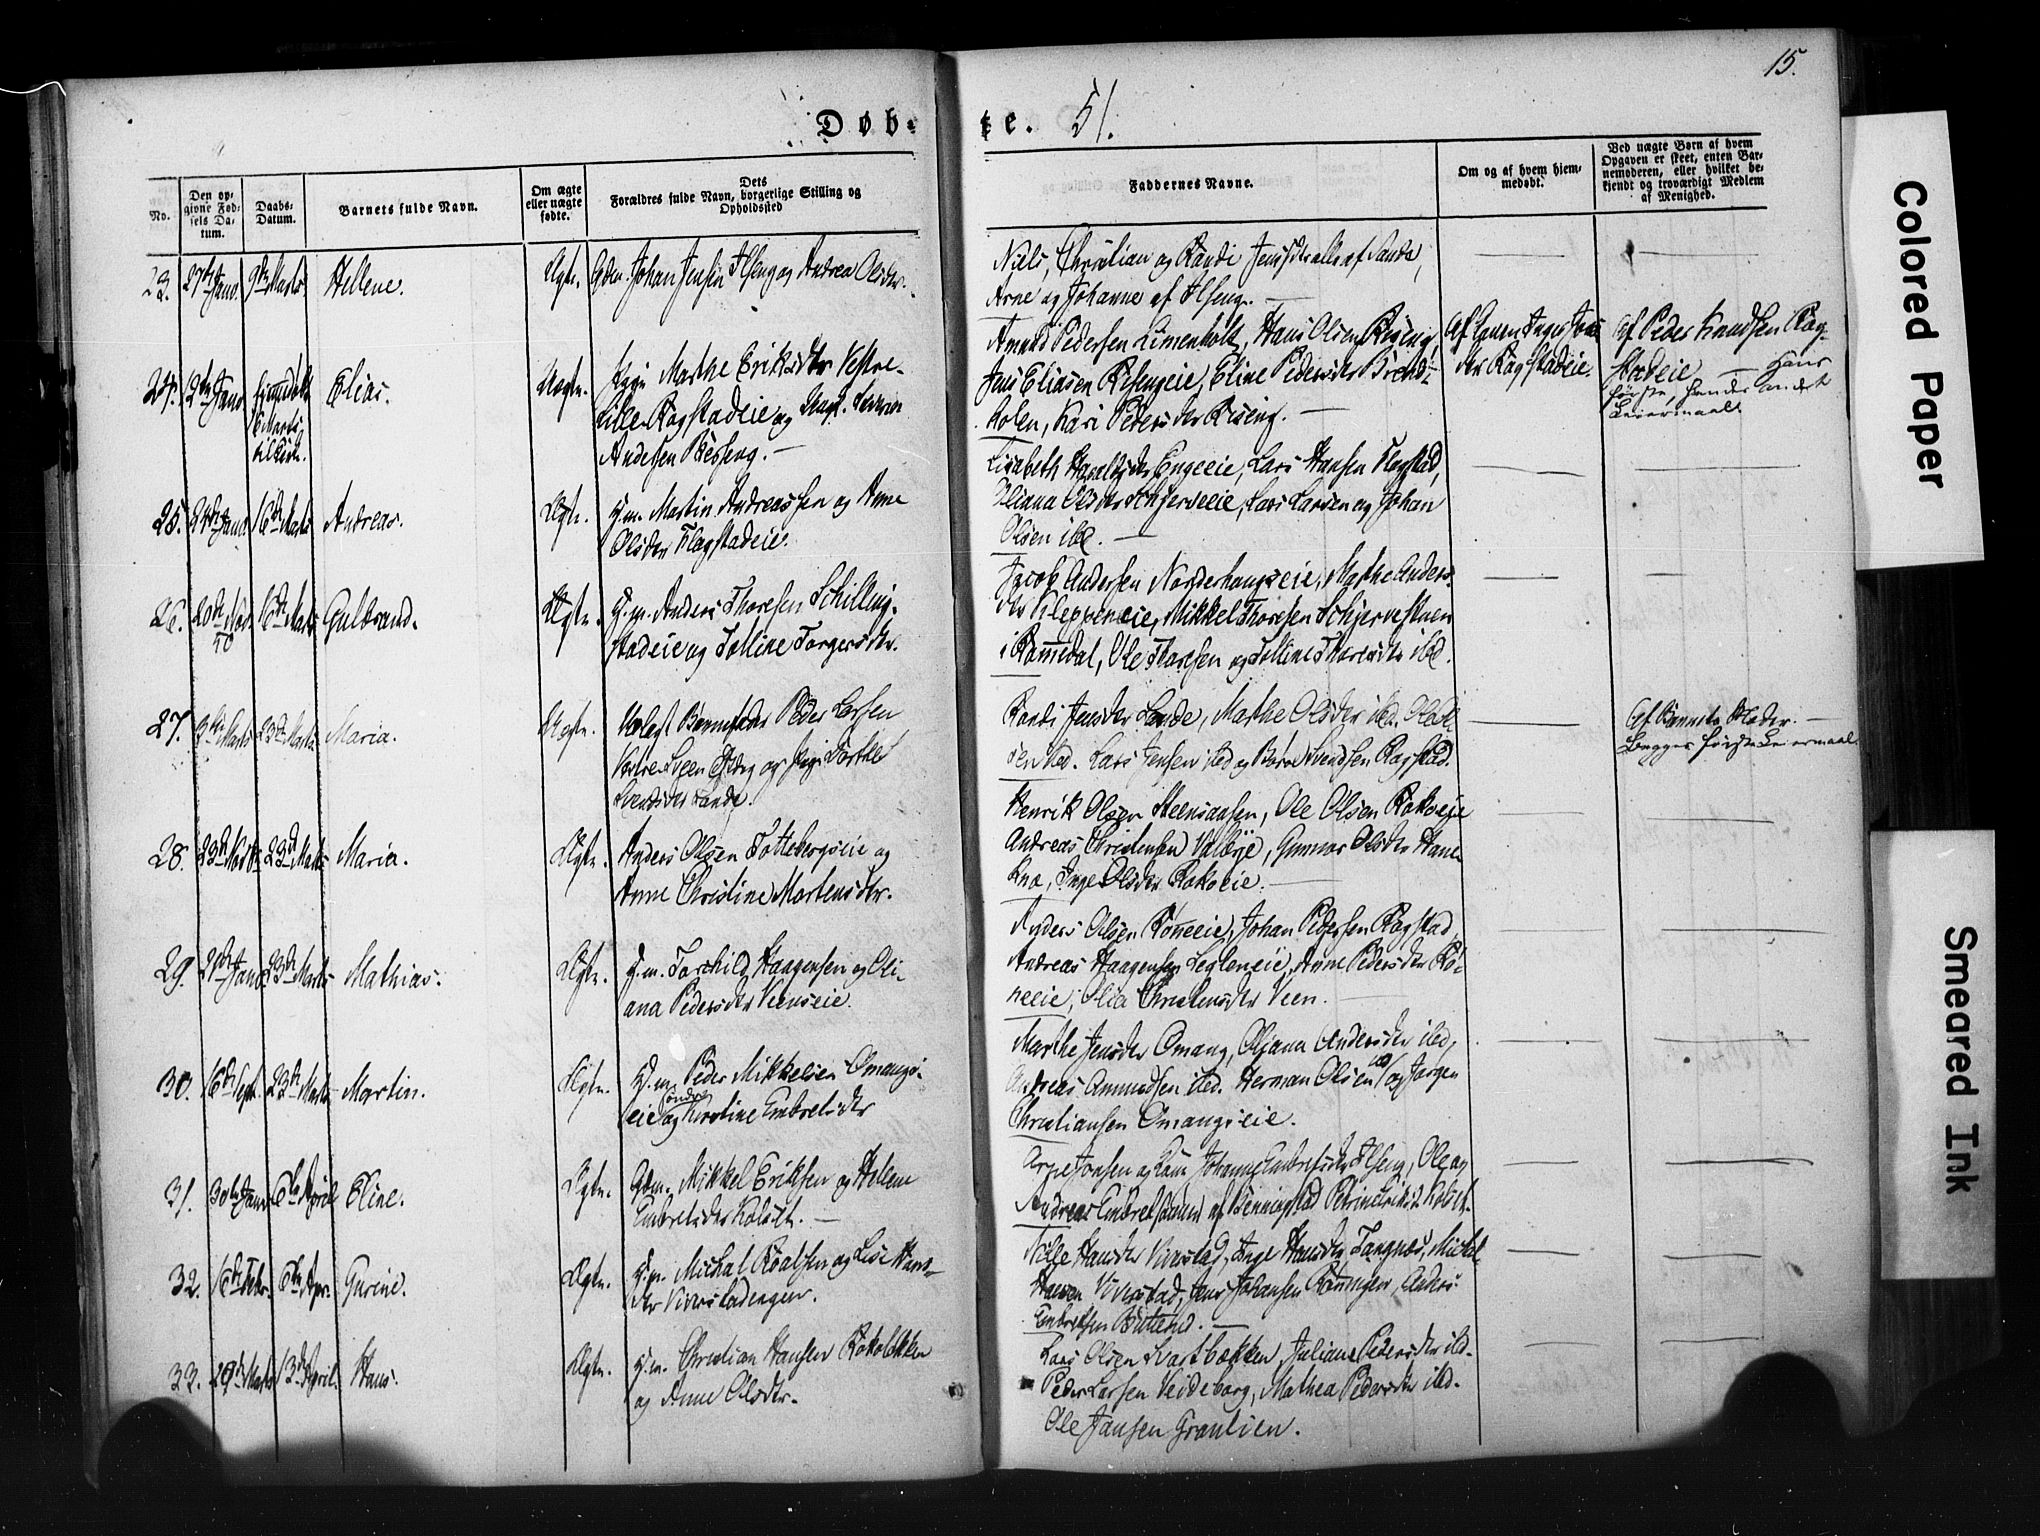 15.
Døb-
te. 51.
No.
Den op-
givne Fød-
sels Da-
tum.
Daabs-
Datum.
Barnets fulde Navn.
Om ægte
eller uægte
fødte.
Dets
Forældres fulde Navn, borgerlige Stilling og
Opholdssted
Faddernes Navne.
Om og af hvem hjem-
medøbt.
Ved uægte Børn af hvem
Opgaven er skeet, enten Bar-
nemoderen, eller hvilket be-
kjendt og troværdigt Medlem
af Menighed.
23. 27de Janr. 9de Marts Hellene. Ægte. Gdm. Johan Jensen Ilseng og Andrea Olsdtr.
Niels, Christian og Randi Jensdtr alle af Sande,
Arne og Johanne af Ilseng.
24. 12te Janr Elias. Uægte.
16 Marts
til Kirke.
Pige Marthe Eriksdtr Vestre-
Lille-Ragstadeie og Ungk. Severin
Andersen Berseng.
Amund Pedersen Limenholt, Hans Olsen Riseng,
Jens Eliasen Risengeie, Eline Pedersdtr Brend-
holen, Kari Pedersdtr Riseng.
Af Inger Jens
dtr Ragstadeie.
Af Peder Knudsen Rag-
stadeie Hans
første, hendes andet
Leiermaal.
25. 24de Janr. 16de Marts Andreas. Ægte. H.m. Martin Andreassen og Anne
Olsdtr Flagstadeie.
Lisabeth Haraldsdtr Engeeie, Lars Hansen Flagstad,
Oliana Olsdtr Schjerveeie, Lars Larsen og Johan
Olsen ibd.
26. 20de Nov. 50 16de Marts Gulbrand. Ægte. H.m. Anders Thoresen Schilling-
stadeie og Tolline Torgersdtr.
Jacob Andersen Norderhaugseie, Marthe Anders-
dtr Kleppeneie, Mikkel Thoresen Schjervestuen
i Romedal, Ole Thoresen og Tolline Thoresdtr ibd.
27. 3die Marts 23de Marts Maria. Uægte. Peder Larsen
og Pige Dorthe
Svendsdtr Sande.
Randi Jensdtr Sande, Marthe Olsdtr ibd. Ole Ol-
sen ibd. Lars Jensen ibd og Svendsen Ragstad.
Af Barnets Moder.
Begges første Leiermaal.
28. 23de Marts Maria. Ægte. Anders Olsen Tottebergseie og
Anne Christine Mortensdtr.
Henrik Olsen Steensaasen, Ole Olsen Rokoeie
Andreas Christensen Valbye, Gunnor Olsdtr Hane-
kna, Inger Olsdtr Rokoeie.
29. 21de Janr 23de Marts Mathias. Ægte. H.m. Torchild Haagensen og Oli-
ana Pedersdtr Veenseie.
Anders Olsen Rønneeie, Johan Pedersen Ragstad,
Andreas Haagensen Legleneie, Anne Pedersdtr Røn-
neeie, Olia Christensdtr Veen.
30. 16de Sept. 23de Marts Martin. Ægte. H.m. Peder Mikkelsen Omangs-
eie søndre og Kirstine Embretsdtr
Marthe Jensdtr Omang, Oliana Andersdtr ibd,
Andreas Amundsen ibd. Herman Olsen ibd og Jørgen
Christiansen Omangseie.
31. 30te Janr 6te April Eline. Ægte. Gdm. Mikkel Eriksen og Hellene
Embretsdtr Kolset.
Arne Jonsen og Kone Johanne Embretsdtr Ilseng, Ole og
Andreas Embretsønner af Benningstad Petrine Eriksdtr Kolset.
32. 16de Febr. 6te Apr. Gurine. Ægte. H.m. Michal Roalsen og Lise Hans-
dtr Viverstadengen.
Nille Hansdtr Viverstad, Inge Hansdtr Tangnæs, Michal
Hansen Viverstad, Jens Johansen Rønningen, Anders
Embretsen
33. 29de Marts 13de April. Hans. Ægte. H.m. Christian Hansen Rokobakken
og Anne Olsdtr.
Lars Olsen Svartbækken, Juliane Pedersdtr ibd.
Peder Larsen Veideborg, Mathea Pedersdtr ibd.
Ole Jansen Granlien.
Colored Paper
Smeared Ink